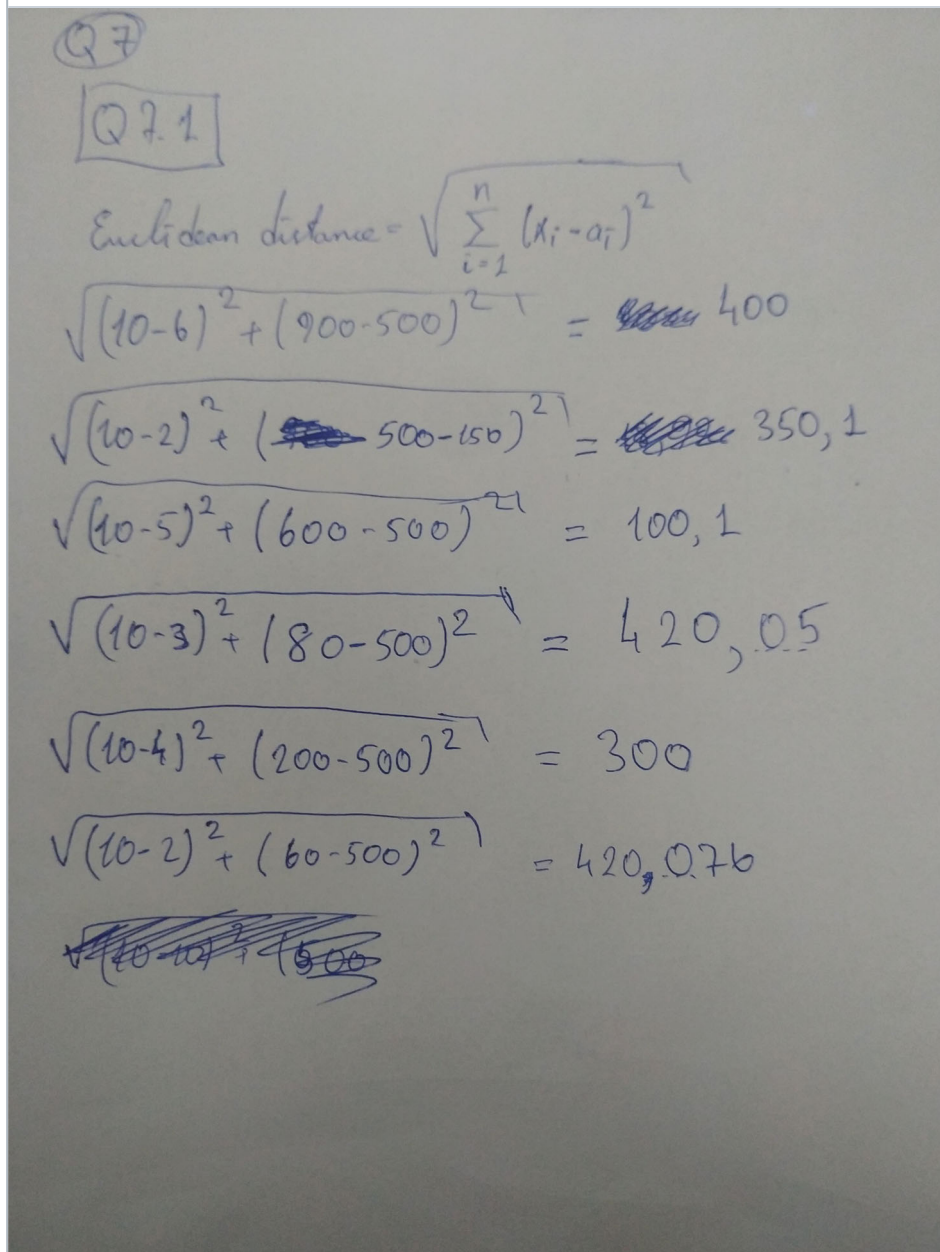 Q7
Q7.1
Euclidean distance = √ n Σ i=1 (xi - ai)²
√(10-6)² + (900-500)² = 400
√(10-2)² + (500-150)² = 350,1
√(10-5)² + (600-500)² = 100,1
√(10-3)² + (80-500)² = 420,05
√(10-4)² + (200-500)² = 300
√(10-2)² + (60-500)² = 420,076